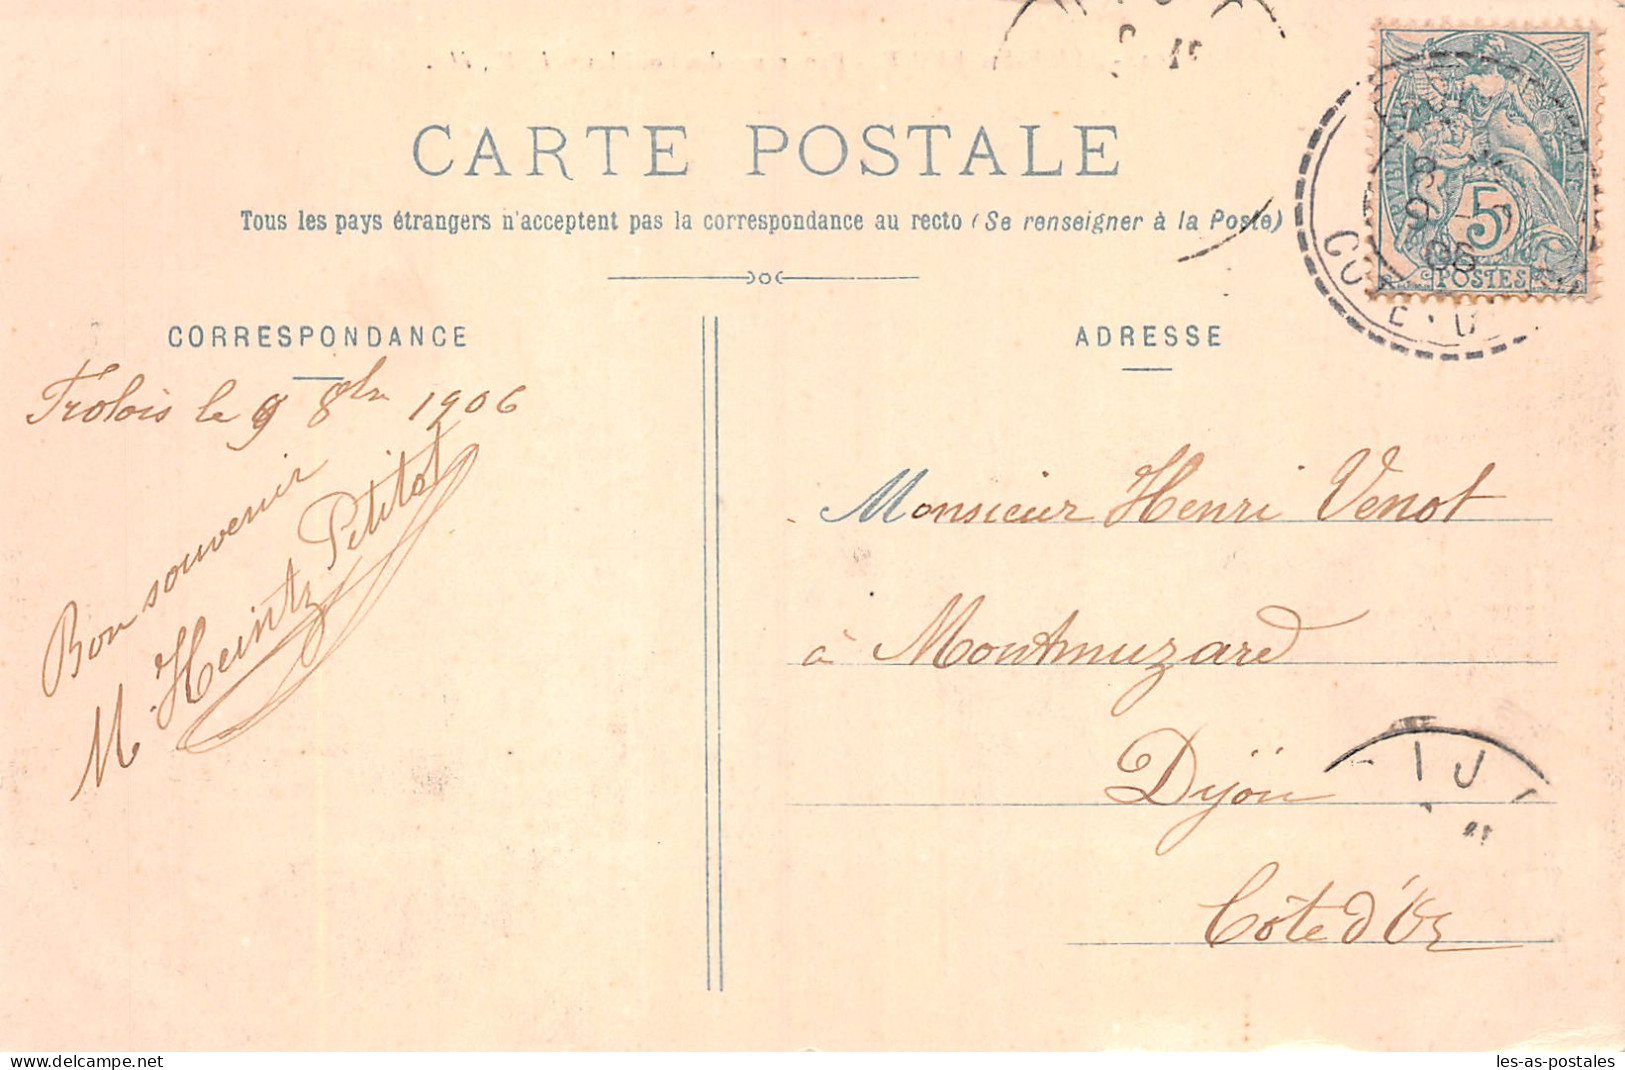 CARTE POSTALE
Tous les pays étrangers n'acceptent pas la correspondance au recto (Se renseigner à la Poste)
CORRESPONDANCE
Frolois le 9 8bre 1906
Bon souvenir
M Heintz Petitot
ADRESSE
Monsieur Henri Venot
à Montmuzard
Dijon
Côte d'Or
5
POSTES
06
www.delcampe.net
les-as-postales